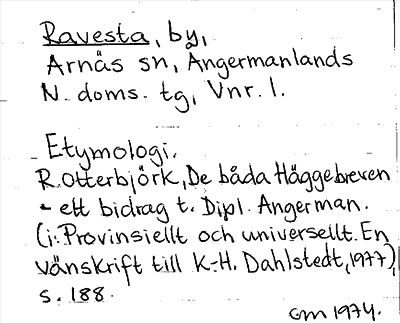 Ravesta, by,
Arnäs sn, Ångermanlands
N. doms. tg, Vnr. 1.
Etymologi.
R. Otterbjörk, De båda Häggebreven
- ett bidrag t. Dipl. Angerman.
(i: Provinsiellt och universellt. En
vänskrift till K-H. Dahlstedt, 1977),
s. 188.
GM 1974.